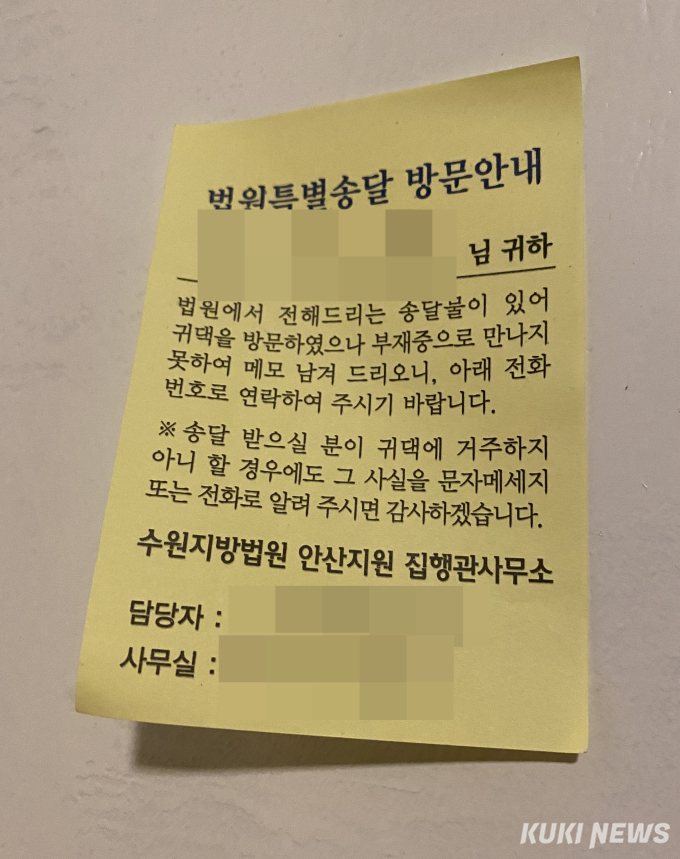 법원특별송달 방문안내
님 귀하
법원에서 전해드리는 송달물이 있어
귀댁을 방문하였으나 부재중으로 만나지
못하여 메모 남겨 드리오니, 아래 전화
번호로 연락하여 주시기 바랍니다.
※ 송달 받으실 분이 귀댁에 거주하지
아니 할 경우에도 그 사실을 문자메세지
또는 전화로 알려 주시면 감사하겠습니다.
수원지방법원 안산지원 집행관사무소
담당자 :
사무실 :
KUKI NEWS